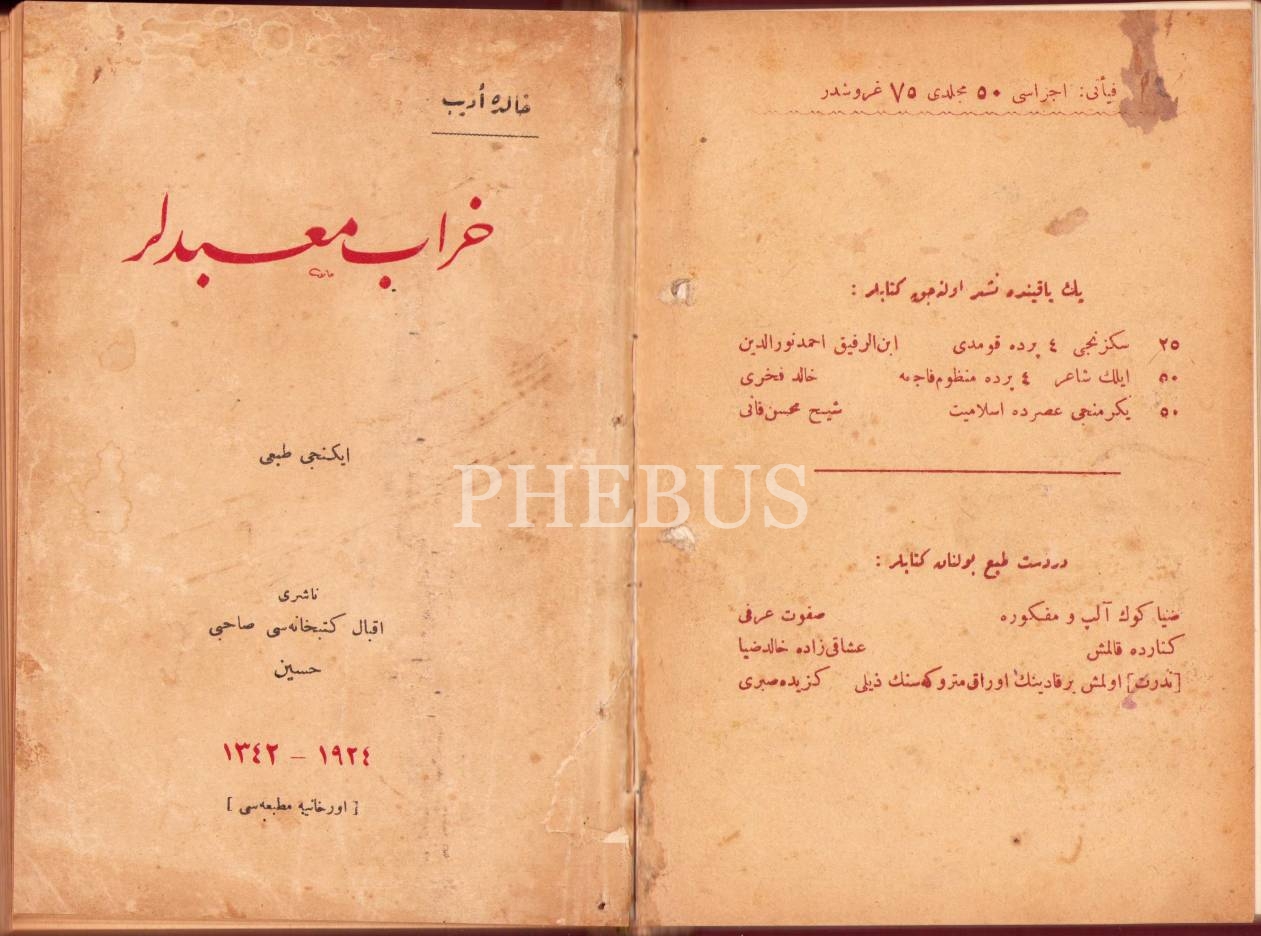 خالده أديب
خراب معبدلر
ايكنجى طبعى
ناشرى
اقبال كتبخانه‌سى صاحبى
حسين
١٩٢٤ – ١٣٤٢
[ اورخانيه مطبعه‌سى ]
فيأتى: اجزاسى ٥٠ مجلدى ٧٥ غروشدر
پك ياقينده نشر اوله‌جق كتابلر :
٢٥ سكزنجى ٤ پرده قومدى ابن‌الرفيق احمد نورالدين
٥٠ ايلك شاعر ٤ پرده منظوم فاجعه خالد فخرى
٥٠ يكرمنجى عصرده اسلاميت شيخ محسن فانى
دردست طبع بولنان كتابلر :
ضيا كوك آلپ و مفكوره صفوت عرفى
كنارده قالمش عشاقى زاده خالد ضيا
[ندرت] اولمش بر قادينك اوراق متروكه‌سنك ذيلى كزيده صبرى
PHEBUS